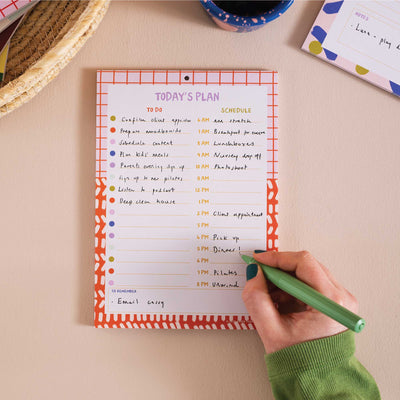 TODAY'S PLAN
TO DO SCHEDULE
Confirm client appoint 6 AM stretch
Prepare moodboards 7 AM Breakfast
Schedule content 8 AM Lunchboxes
Plan kids' meals 9 AM Nursery drop off
Parents evening sign up 10 AM Photoshoot
Sign up to new pilates 11 AM
Listen to podcast 12 PM
Deep clean house 1 PM
2 PM Client appointment
3 PM
4 PM Pick up
5 PM Dinner!
6 PM
7 PM Pilates
8 PM Unwind
TO REMEMBER
· Email
NOTES
play d